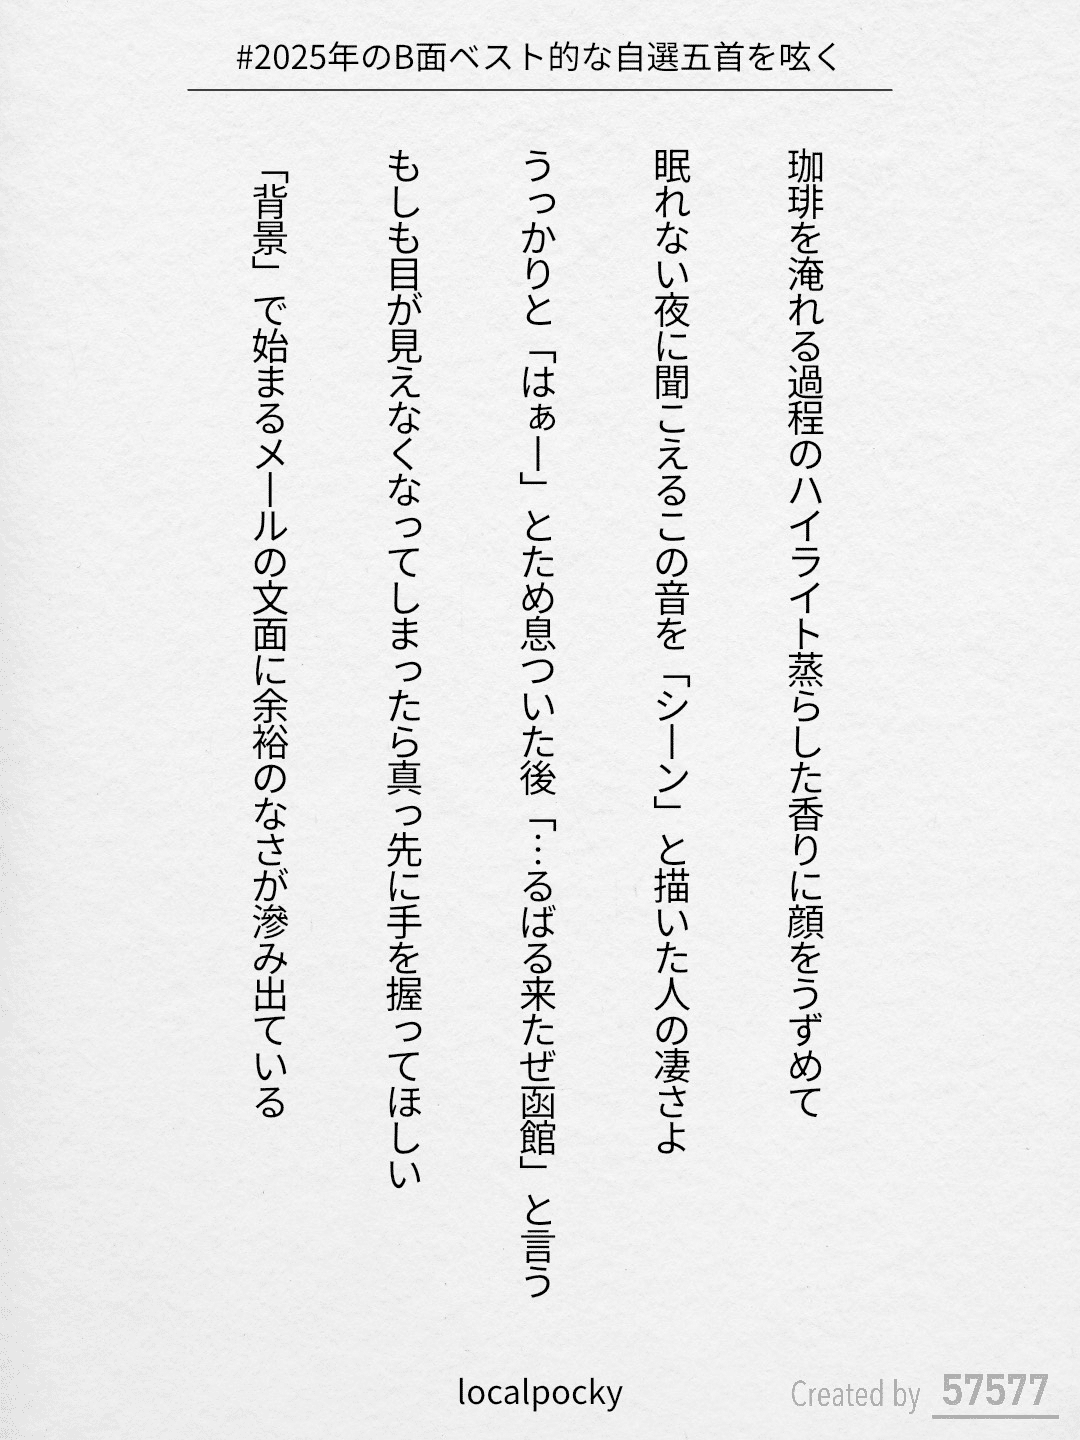 #2025年のB面ベスト的な自選五首を呟く
珈琲を淹れる過程のハイライト蒸らした香りに顔をうずめて
眠れない夜に聞こえるこの音を「シーン」と描いた人の凄さよ
うっかりと「はぁー」とため息ついた後「…るばる来たぜ函館」と言う
もしも目が見えなくなってしまったら真っ先に手を握ってほしい
「背景」で始まるメールの文面に余裕のなさが滲み出ている
localpocky
Created by 57577